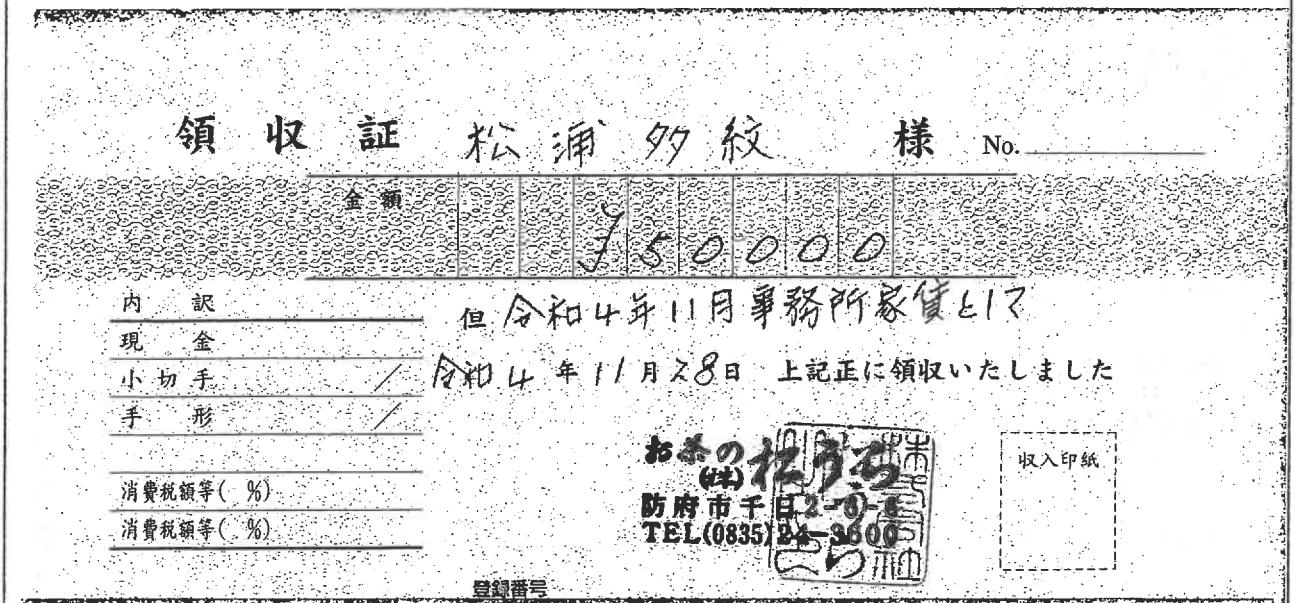 領収証 松浦多紋 様 No.
金額 ¥50000
内訳
現金
小切手 /
手形 /
消費税額等( %)
消費税額等( %)
但 令和4年11月事務所家賃として
令和4年11月28日 上記正に領収いたしました
お茶の
(株)松うち
防府市千日2-6-8
TEL(0835)24-3600
収入印紙
登録番号